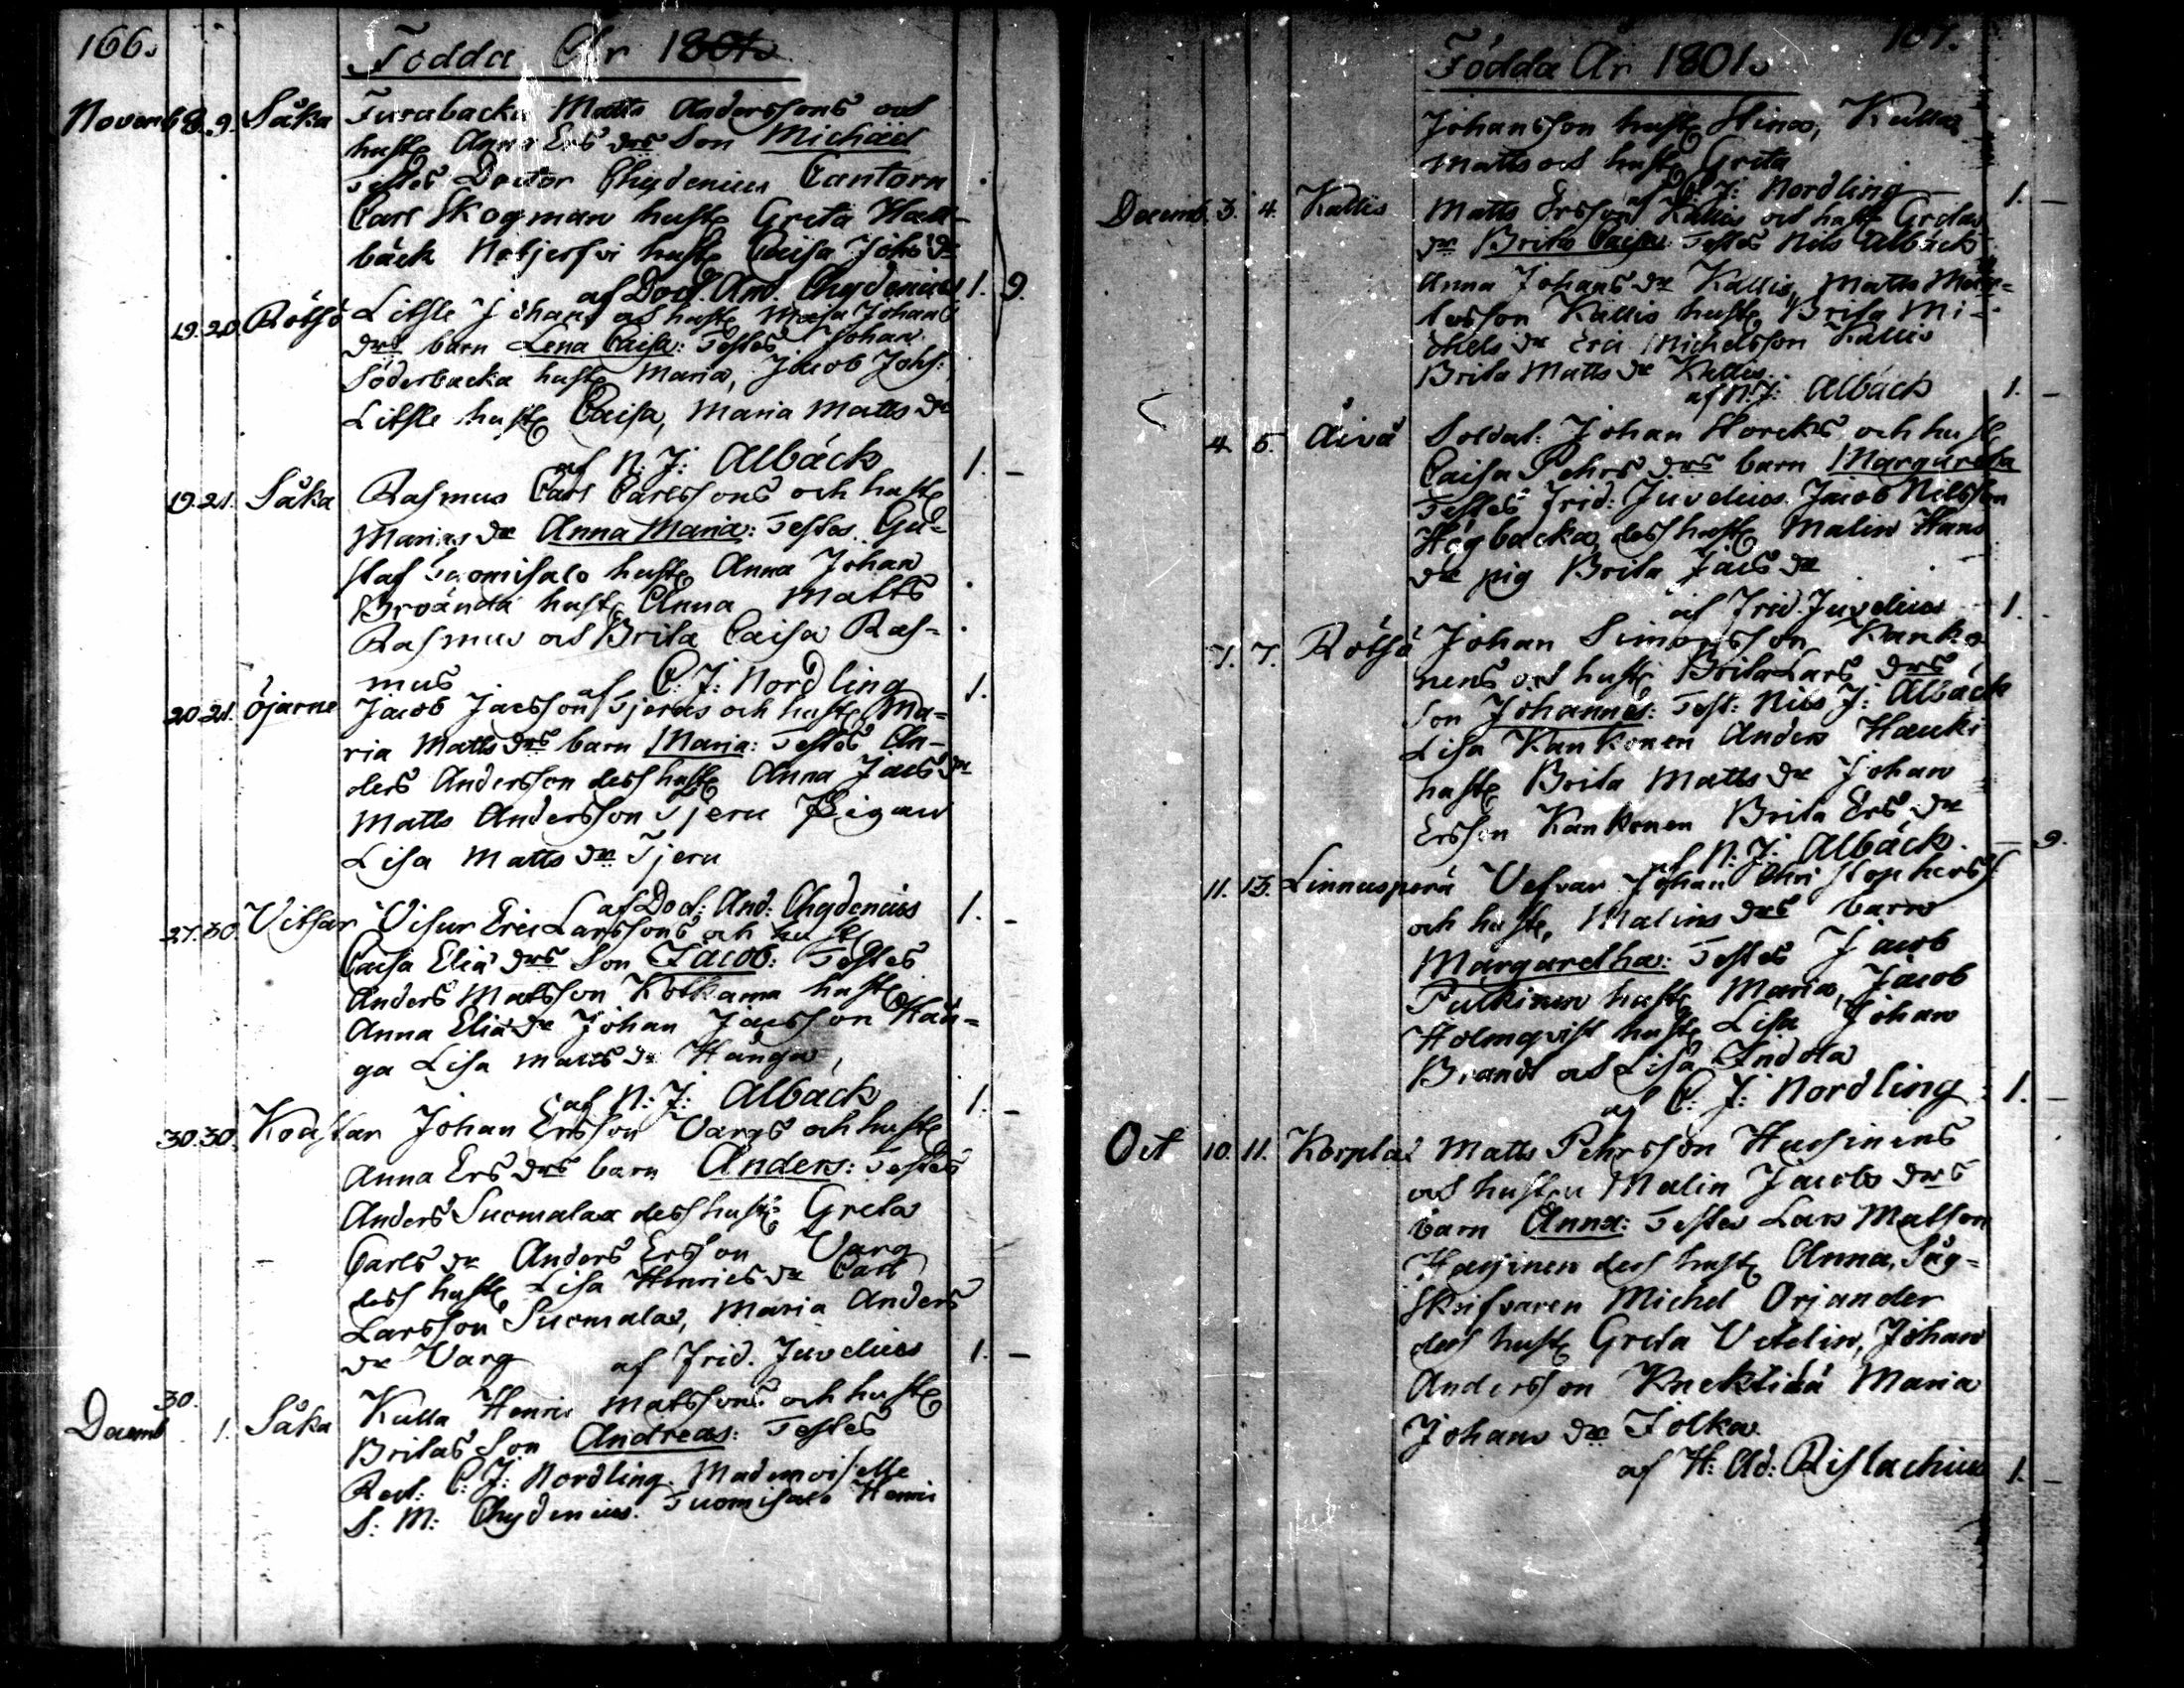 166.
Födda År 1801.
Novemb 8. 9. Såka Furubacka Matts Anderssons och
hust Ers drs Son Michäel
Testes Doctor Chydenius Cantorn
Carl Skogman hust Greta Hall-
bäck hust Caisa Johs dr
af Doct. And. Chydenius 1. 9.
19. 20. Rötsö Litsle Johans och hust Maja Johans
drs barn Lena Caisa: Testes Johan
Söderbacka hust Maria, Jacob Johs:
Litsle hust Caisa, Maria Matts dr
af N: J: Albäck 1. –
19. 21. Såka Rasmus Carl Carlssons och hust
Marias dr Anna Maria: Testes Gu-
staf Tuomisalo hust Anna Johan
Brvända hust Anna Matts
Rasmus och Brita Caisa Ras-
mus af C: J: Nordling 1.
20. 21. Öjarne Jacob Jacssons Tjerus och hust Ma-
ria Matts drs barn Maria: Testes An-
ders Andersson dess hust Anna Jacs dr
Matts Andersson Tjeru Pigan
Lisa Matts dr Tjeru
af Doct: And: Chydenius 1. –
27. 30. Vitsar Visur Eric Larssons och hust
Caisa Eliæ drs Son Jacob: Testes
Anders Matsson Kotkama hust
Anna Eliæ dr Johan Jacsson Hän-
ga Lisa Matts dr Hänga
af N: J: Albäck 1. –
30. 30. Koastar Johan Ersson Vargs och hust
Anna Ers drs barn Anders: Testes
Anders Suomalax dess hust Greta
Carls dr Anders Ersson Varg
dess hust Lisa Henrics dr Carl
Larsson Suomalax, Maria Anders
dr Varg af Frid. Juvelius 1. –
30.
Decemb 1. Såka Kulla Henric Matssons och hust
Britas Son Andreas: Testes
Past: C: J: Nordling. Mademoiselle
S: M: Chydenius. Tuomisalo Henric
167.
Födda År 1801.
Johansson hust Stina, Kulla
Matts och hust Greta
af C: J: Nordling – 1. –
Decemb. 3. 4. Kallis Matts Ersson Kallis och hust Gretas
dr Brita Caisa: Testes Nils Albäck
Anna Johans dr Kallis, Matts
Kallis hust Brita Mi-
chels dr Eric Michelsson Kallis
Brita Matts dr Kallis.
af N: J: Albäck 1. –
4. 5. Åivå Soldat: Johan Storcks och hust
Caisa Pehrs drs barn Margareta
Testes Frid: Juvelius. Jacob Nilsson
Högbacka, dess hust Malin Hans
dr pig Brita Jacs dr
af Frid. Juvelius 1. –
7. 7. Rötsö Johan Simonsson Kanko-
nens och hust Brita Lars drs
Son Johannes: Test: Nils J: Albäck
Lisa Kankonen Anders Hauki
hust Brita Matts dr Johan
Ersson Kankonen Brita Ers dr
af N: J: Albäck. – 9.
11. 13. Linnusperä Vefvar Johan Christophers
och hust, Malins drs barn
Margaretha: Testes Jacob
Pulkinen hust Maria, Jacob
Holmqvist hust Lisa Johan
Brandt och Lisa Indola
af C: J: Nordling 1. –
Oct 10. 11. Korpla: Matts Pehrsson Huusinens
och hustru Malin Jacobs drs
barn Anna: Testes Lars Matsson
dess hust Anna, Såg-
skrifvaren Michel Orjander
dess hust Greta Vetelin, Johan
Andersson Knektilä Maria
Johans dr Tolka
af H: Ad: Rislachius 1. –